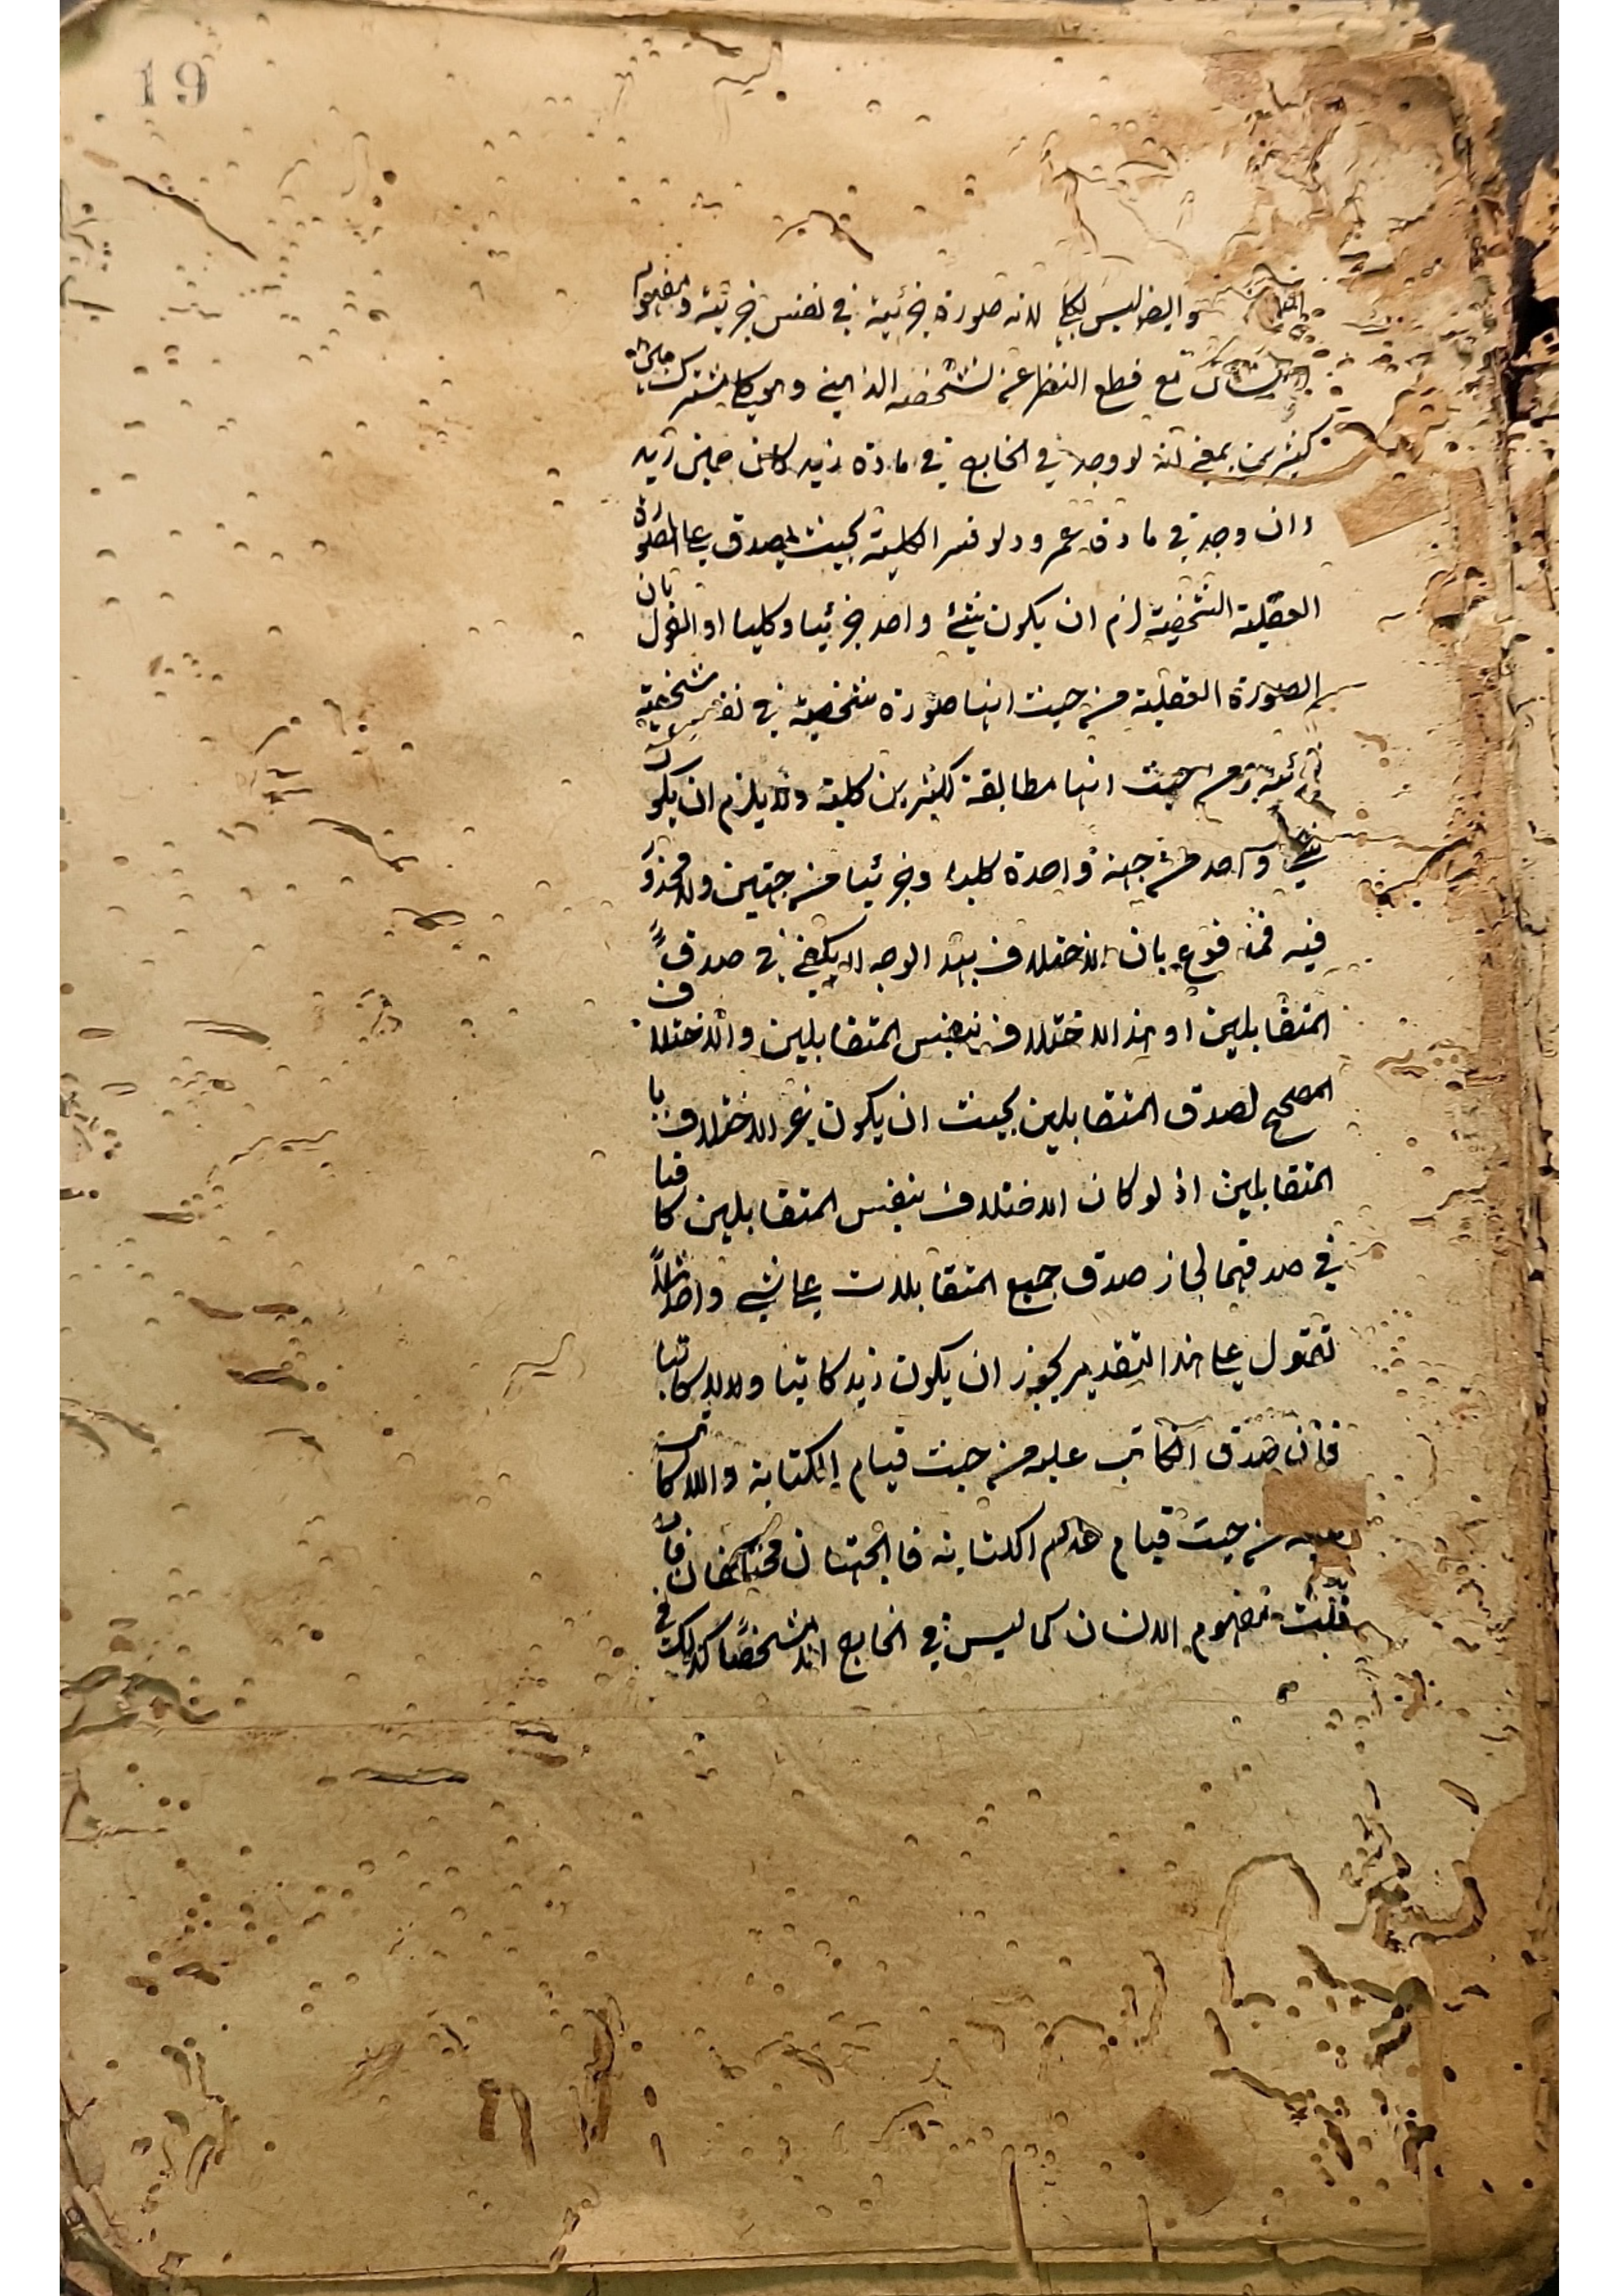 19
وايضا ليس بكلي لانه صورة جزئية في نفس جزئية ومفهوم
الانسان مع قطع النظر عن تشخصه الذهني والخارجي مشترك بين
كثيرين بمعنى انه لو وجد في الخارج في مادة زيد كان عين زيد
وان وجد في مادة عمرو ولو فسر الكلية بحيث يصدق على الصورة
العقلية الشخصية لزم ان يكون شيئ واحد جزئيا وكليا او القول بان
الصورة العقلية من حيث انها صورة شخصية في نفس شخصية
جزئية ومن حيث انها مطابقة لكثيرين كلية ولا يلزم ان يكون
شيئ واحد من جهة واحدة كليا وجزئيا من جهتين ولا محذور
فيه فمدفوع بان الاختلاف بهذ الوجه لا يكفي في صدق
المتقابلين اذ هذا الاختلاف بنفس المتقابلين والاختلاف
المصحح لصدق المتقابلين بحيث ان يكون غير الاختلاف با
المتقابلين اذ لو كان الاختلاف بنفس المتقابلين كافيا
في صدقهما لجاز صدق جميع المتقابلات على شيئ واحد مثلا
تقول على هذا التقدير يجوز ان يكون زيد كاتبا ولا كاتبا
فان صدق الكاتب عليه من حيث قيام الكتابة واللا كاتب
عليه من حيث قيام عدم الكتابة فالجهتان مختلفتان فان
قلت مفهوم الانسان كما ليس في الخارج الا مشخصا كذلك في